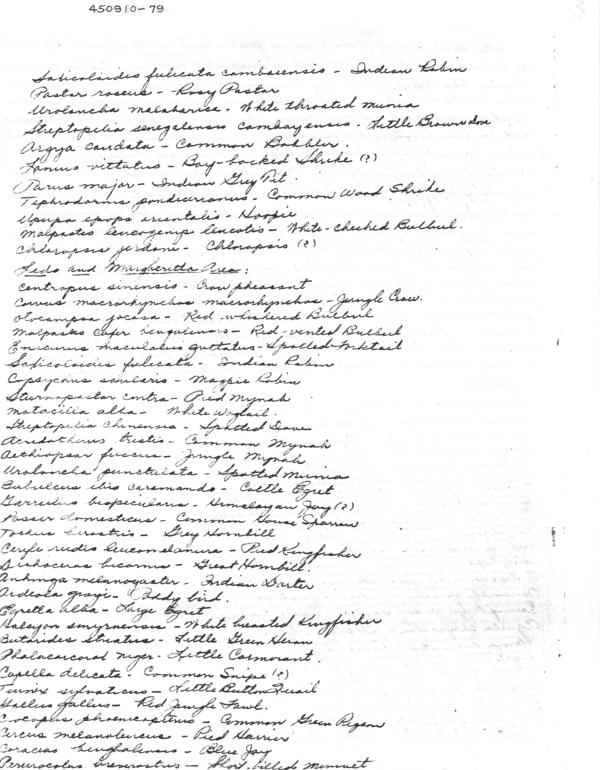 450910-79
Saxicoloides fulicata cambaiensis - Indian Robin
Pastor roseus - Rosy Pastor
Uroloncha malabarica - White throated munia
Streptopelia senegalensis cambayensis - Little Brown dove
Argya caudata - Common Babbler.
Lanius vittatus - Bay-backed Shrike (?)
Parus major - Indian Grey Tit.
Tephrodornis pondicerianus - Common Wood Shrike
Upupa epops orientalis - Hoopie
Molpastes leucogenys leucotis - White-cheeked Bulbul.
Chloropsis jerdoni - Chloropsis (?)
Ledo and Margheretta Area:
Centropus sinensis - Crow pheasant
Corvus macrorhynchos macrorhynchos - Jungle Crow.
Otocompsa jocosa - Red-whiskered Bulbul
Molpastes cafer bengalensis - Red-vented Bulbul
Enicurus maculatus guttatus - Spotted-Forktail
Saxicoloides fulicata - Indian Robin
Copsychus saularis - Magpie Robin
Sturnopastor contra - Pied Mynah
Motacilla alba - White Wagtail.
Streptopelia chinensis - Spotted Dove
Acridotherus tristis - Common Mynah
Aethiopsar fuscus - Jungle Mynah
Uroloncha punctulata - Spotted Munia
Bubulcus ibis coromandus - Cattle Egret
Garrulus bispecularis - Himalayan Jay (?)
Passer domesticus - Common House Sparrow
Tockus birostris - Grey Hornbill
Ceryle rudis leucomelanura - Pied Kingfisher
Dichoceros bicornis - Great Hornbill.
Anhinga melanogaster - Indian Darter
Ardeola grayi - Paddy bird.
Egretta alba - Large Egret
Halcyon smyrnensis - White breasted Kingfisher
Butorides striatus - Little Green Heron
Phalacrocorax niger - Little Cormorant.
Capella delicata - Common Snipe (?)
Turnix sylvaticus - Little Button Quail
Gallus gallus - Red Jungle Fowl.
Crocopus phoenicopterus - Common Green Pigeon
Circus melanoleucus - Pied Harrier
Coracias benghalensis - Blue Jay
Pericrocotus brevirostris - Short-billed Minivet